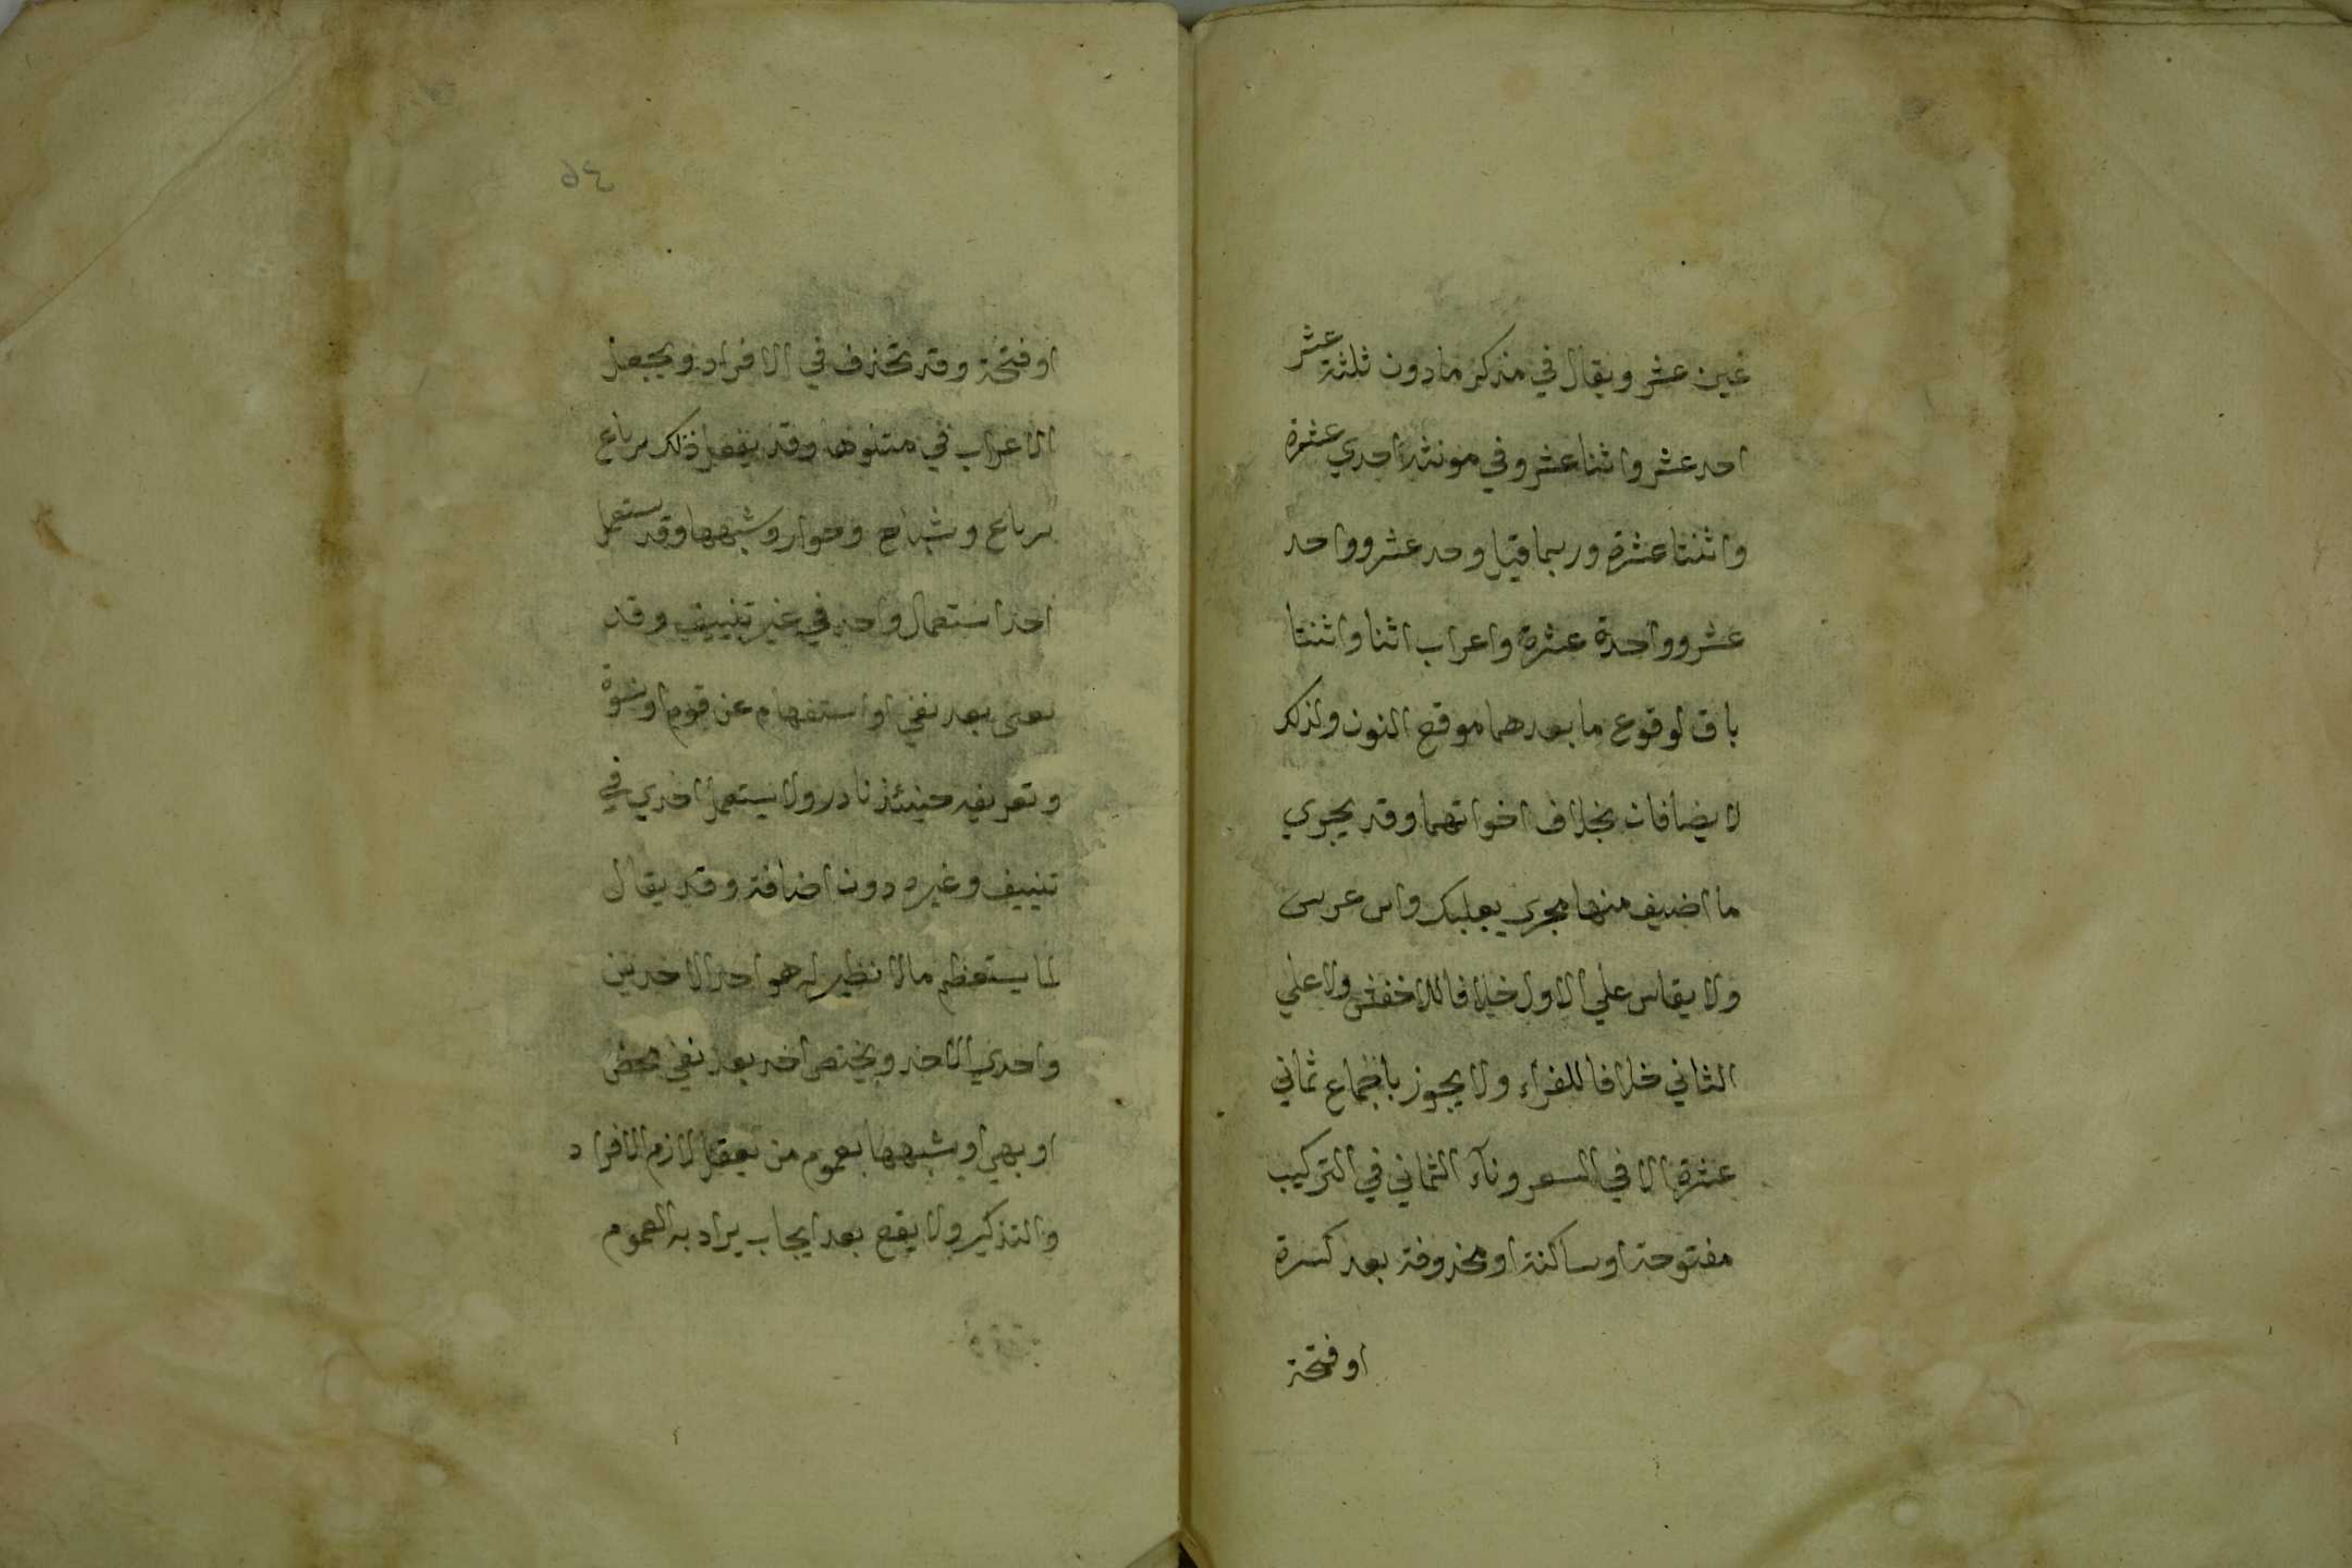 غين عشر ويقال في مذكر ما دون ثلثة عشر
احد عشر واثنا عشر وفي مونثه احدي عشرة
واثنتا عشرة وربما قيل وحد عشر وواحد
عشر وواحدة عشرة واعراب اثنا واثنتا
باق لوقوع ما بعدهما موقع النون ولذلك
لا يضافان بخلاف اخواتهما وقد يجري
ما اضيف منها مجري بعلبك وابن عرس
ولا يقاس علي الاول خلافا للاخفش ولا علي
الثاني خلافا للفراء ولا يجوز باجماع ثماني
عشرة الا في الشعر وياء الثماني في التركيب
مفتوحة او ساكنة او محذوفة بعد كسرة
او فتحة
٩٤
او فتحة وقد تحذف في الافراد ويجعل
الاعراب في متلوها وقد يفعل ذلك برباع
وشناح وجوار وشبهها وقد يستعمل
احد استعمال واحد في غير تنييف وقد
يغني بعد نفي او استفهام عن قوم او نسوة
وتعريفه حينئذ نادر ولا يستعمل احدي في
تنييف وغيره دون اضافة وقد يقال
لما يستعظم مما لا نظير له هو احد الاحدين
واحدي الاحد ويختص احد بعد نفي محض
او نهي او شبهها بعموم من يعقل لازم الافراد
والتذكير ولا يقع بعد ايجاب يراد به العموم